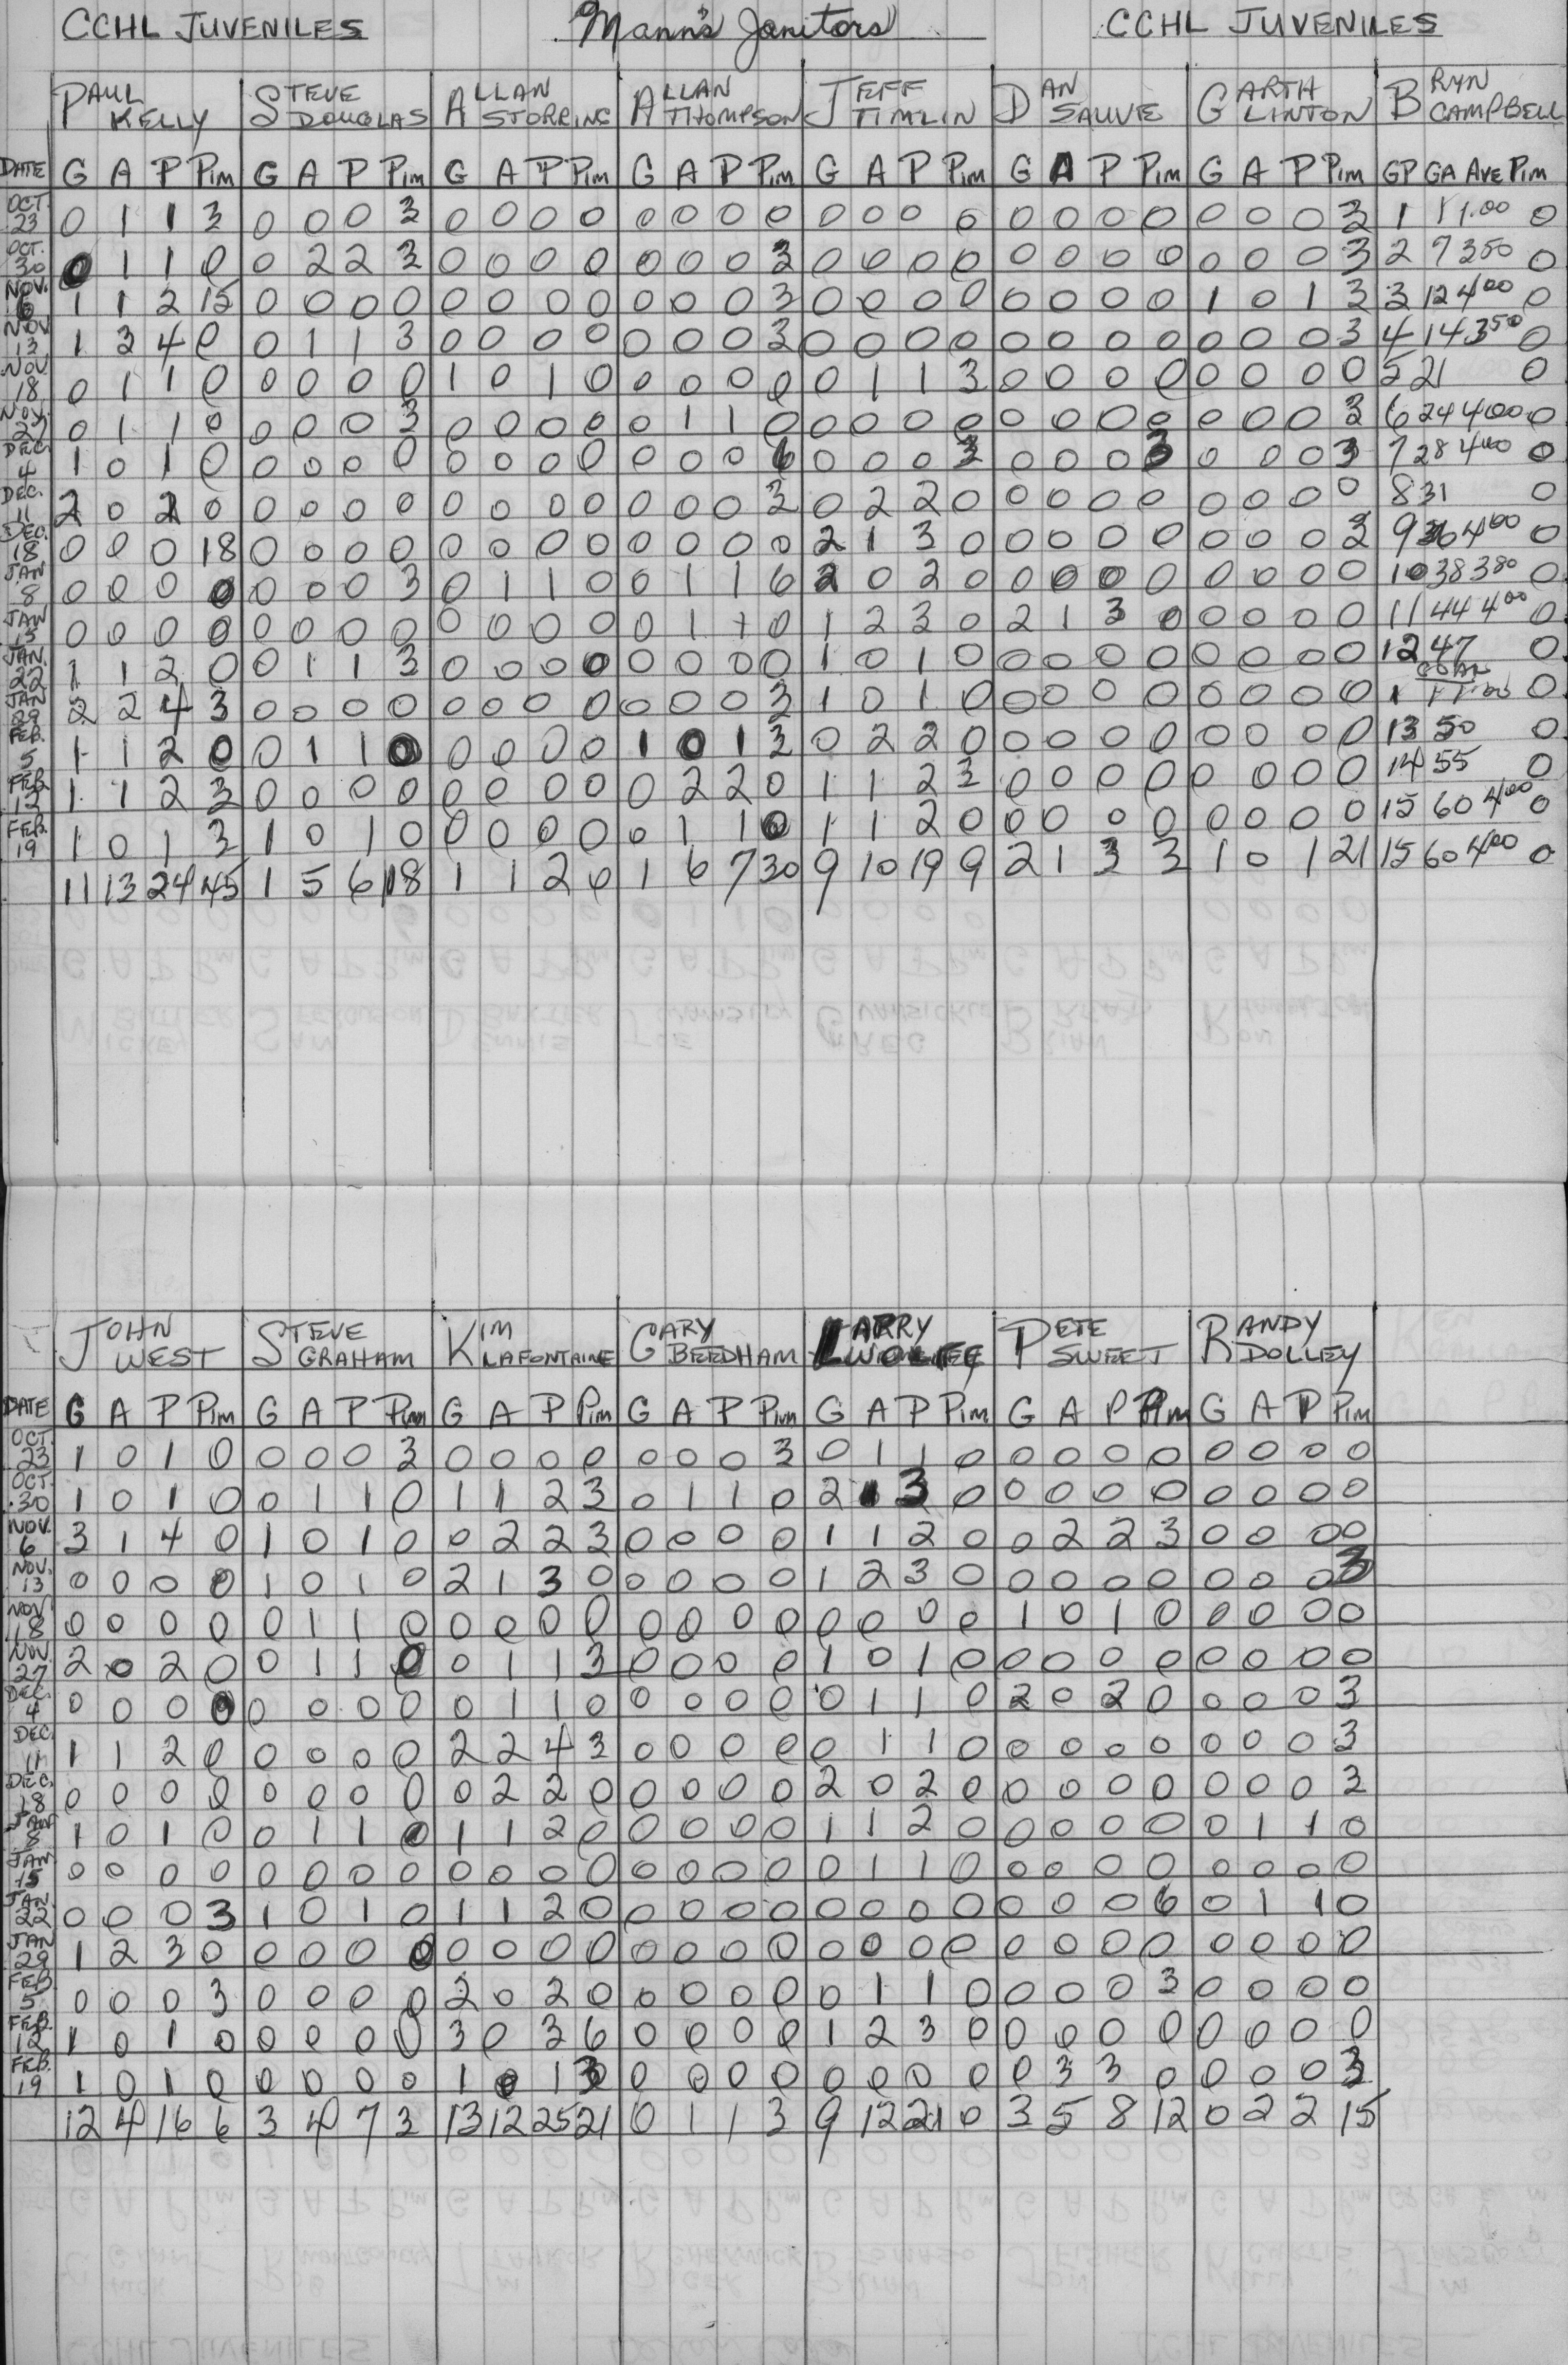 CCHL JUVENILES Mann's Janitors CCHL JUVENILES
PAUL KELLY STEVE DOUGLAS ALLAN STORRING ALLAN THOMPSON JEFF TIMLIN DAN SAUVE GARTH LINTON BRYN CAMPBELL
DATE G A P Pim G A P Pim G A P Pim G A P Pim G A P Pim G A P Pim G A P Pim GP GA Ave Pim
OCT. 23 0 1 1 3 0 0 0 3 0 0 0 0 0 0 0 0 0 0 0 0 0 0 0 0 0 0 0 3 1 1 1.00 0
OCT. 30 0 1 1 0 0 2 2 3 0 0 0 0 0 0 0 3 0 0 0 0 0 0 0 0 0 0 0 3 2 7 350 0
NOV. 6 1 1 2 15 0 0 0 0 0 0 0 0 0 0 0 3 0 0 0 0 0 0 0 0 1 0 1 3 3 12 400 0
NOV 13 1 3 4 0 0 1 1 3 0 0 0 0 0 0 0 3 0 0 0 0 0 0 0 0 0 0 0 3 4 14 350 0
NOV 18 0 1 1 0 0 0 0 0 1 0 1 0 0 0 0 0 0 1 1 3 0 0 0 0 0 0 0 0 5 21 0
NOV. 27 0 1 1 0 0 0 0 3 0 0 0 0 0 1 1 0 0 0 0 0 0 0 0 0 0 0 0 3 6 24 400 0
DEC 4 1 0 1 0 0 0 0 0 0 0 0 0 0 0 0 6 0 0 0 3 0 0 0 3 0 0 0 3 7 28 400 0
DEC. 11 2 0 2 0 0 0 0 0 0 0 0 0 0 0 0 3 0 2 2 0 0 0 0 0 0 0 0 0 8 31 0
DEC. 18 0 0 0 18 0 0 0 0 0 0 0 0 0 0 0 0 2 1 3 0 0 0 0 0 0 0 0 3 9 36 400 0
JAN 8 0 0 0 0 0 0 0 3 0 1 1 0 0 1 1 6 2 0 2 0 0 0 0 0 0 0 0 0 10 38 380 0
JAN 15 0 0 0 0 0 0 0 0 0 0 0 0 0 1 1 0 1 2 3 0 2 1 3 0 0 0 0 0 11 44 400 0
JAN. 22 1 1 2 0 0 1 1 3 0 0 0 0 0 0 0 0 1 0 1 0 0 0 0 0 0 0 0 0 12 47 0
JAN 29 2 2 4 3 0 0 0 0 0 0 0 0 0 0 0 3 1 0 1 0 0 0 0 0 0 0 0 0 1 1 1.00 0
FEB. 5 1 1 2 0 0 1 1 0 0 0 0 0 1 0 1 3 0 2 2 0 0 0 0 0 0 0 0 0 13 50 0
FEB 12 1 1 2 3 0 0 0 0 0 0 0 0 0 2 2 0 1 1 2 3 0 0 0 0 0 0 0 0 14 55 0
FEB. 19 1 0 1 3 1 0 1 0 0 0 0 0 0 1 1 0 1 1 2 0 0 0 0 0 0 0 0 0 15 60 400 0
11 13 24 45 1 5 6 18 1 1 2 0 1 6 7 30 9 10 19 9 2 1 3 3 1 0 1 21 15 60 400 0
JOHN WEST STEVE GRAHAM KIM LAFONTAINE GARY BEEDHAM LARRY WOLFE PETE SWEET RANDY DOLLEY
DATE G A P Pim G A P Pim G A P Pim G A P Pim G A P Pim G A P Pim G A P Pim
OCT. 23 1 0 1 0 0 0 0 3 0 0 0 0 0 0 0 3 0 1 1 0 0 0 0 0 0 0 0 0
OCT. 30 1 0 1 0 0 1 1 0 1 1 2 3 0 1 1 0 2 1 3 0 0 0 0 0 0 0 0 0
NOV. 6 3 1 4 0 1 0 1 0 0 2 2 3 0 0 0 0 1 1 2 0 0 2 2 3 0 0 0 0
NOV. 13 0 0 0 0 1 0 1 0 2 1 3 0 0 0 0 0 1 2 3 0 0 0 0 0 0 0 0 3
NOV 18 0 0 0 0 0 1 1 0 0 0 0 0 0 0 0 0 0 0 0 0 1 0 1 0 0 0 0 0
NOV. 27 2 0 2 0 0 1 1 0 0 1 1 3 0 0 0 0 1 0 1 0 0 0 0 0 0 0 0 0
DEC. 4 0 0 0 0 0 0 0 0 0 1 1 0 0 0 0 0 0 1 1 0 2 0 2 0 0 0 0 3
DEC. 11 1 1 2 0 0 0 0 0 2 2 4 3 0 0 0 0 0 1 1 0 0 0 0 0 0 0 0 3
DEC. 18 0 0 0 0 0 0 0 0 0 2 2 0 0 0 0 0 2 0 2 0 0 0 0 0 0 0 0 3
JAN 8 1 0 1 0 0 1 1 0 1 1 2 0 0 0 0 0 1 1 2 0 0 0 0 0 0 1 1 0
JAN 15 0 0 0 0 0 0 0 0 0 0 0 0 0 0 0 0 0 1 1 0 0 0 0 0 0 0 0 0
JAN. 22 0 0 0 3 1 0 1 0 1 1 2 0 0 0 0 0 0 0 0 0 0 0 0 6 0 1 1 0
JAN 29 1 2 3 0 0 0 0 0 0 0 0 0 0 0 0 0 0 0 0 0 0 0 0 0 0 0 0 0
FEB 5 0 0 0 3 0 0 0 0 2 0 2 0 0 0 0 0 0 1 1 0 0 0 0 3 0 0 0 0
FEB. 12 1 0 1 0 0 0 0 0 3 0 3 6 0 0 0 0 1 2 3 0 0 0 0 0 0 0 0 0
FEB. 19 1 0 1 0 0 0 0 0 1 0 1 3 0 0 0 0 0 0 0 0 0 3 3 0 0 0 0 3
12 4 16 6 3 4 7 3 13 12 25 21 0 1 1 3 9 12 21 0 3 5 8 12 0 2 2 15